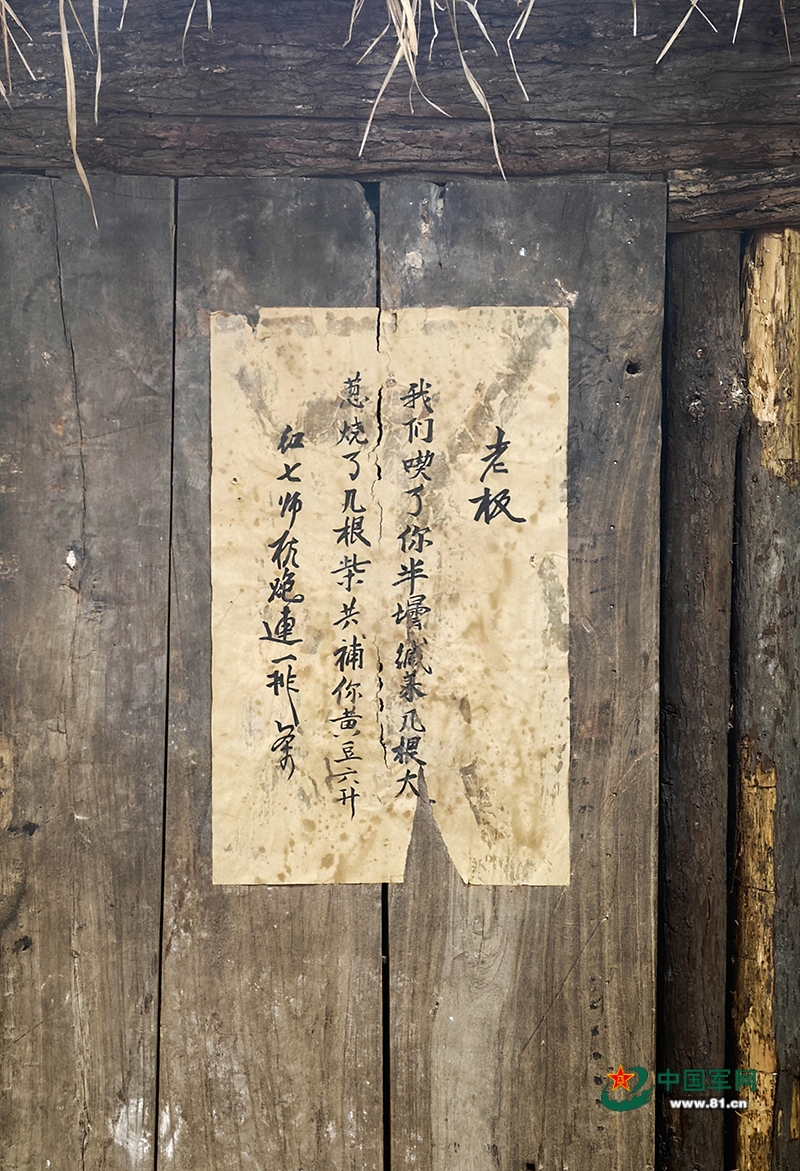 老板
我们喫了你半罈咸菜几根大
葱烧了几根柴共补你黄豆六升
红七师机炮連一排
中国军网
www.81.cn